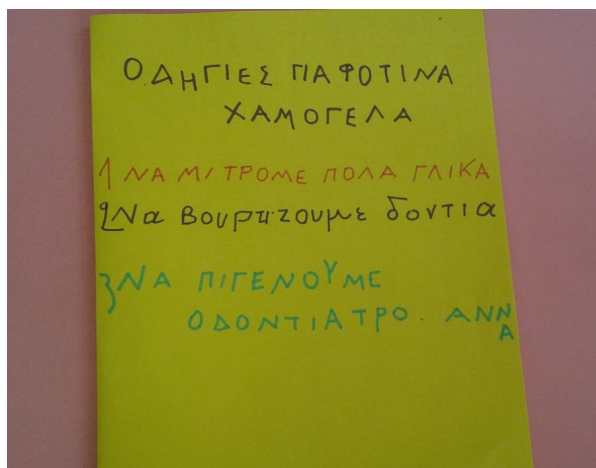 ΟΔΗΓΙΕΣ ΓΙΑ ΦΟΤΙΝΑ
ΧΑΜΟΓΕΛΑ
1 ΝΑ ΜΙ ΤΡΟΜΕ ΠΟΛΑ ΓΛΙΚΑ
2 Να βουρτζιζουμε δοντια
3 ΝΑ ΠΙΓΕΝΟΥΜΕ
ΟΔΟΝΤΙΑΤΡΟ. ΑΝΝ
Α